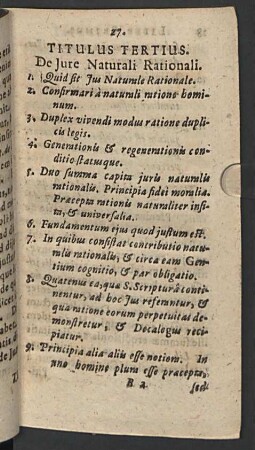 27.
TITULUS TERTIUS.
De Jure Naturali Rationali.
1. Quid sit Jus Naturale Rationale.
2. Confirmari à naturali ratione homi-
num.
3. Duplex vivendi modus ratione dupli-
cis legis.
4. Generationis & regenerationis con-
ditio statusque.
5. Duo summa capita juris naturalis
rationalis. Principia fidei moralia.
Præcepta rationis naturaliter insi-
ta, & universalia.
6. Fundamentum ejus quod justum est.
7. In quibus consistat contributio natu-
ralis rationalis, & circa eam Gen-
tium cognitio, & par obligatio.
8. Quatenus ea, quæ S. Scripturâ conti-
nentur, ad hoc Jus referantur, &
qua ratione eorum perpetuitas de-
monstretur, & Decalogus reci-
piatur.
9. Principia alia aliis esse notiora. In
uno homine plura esse præcepta,
B 2 sed